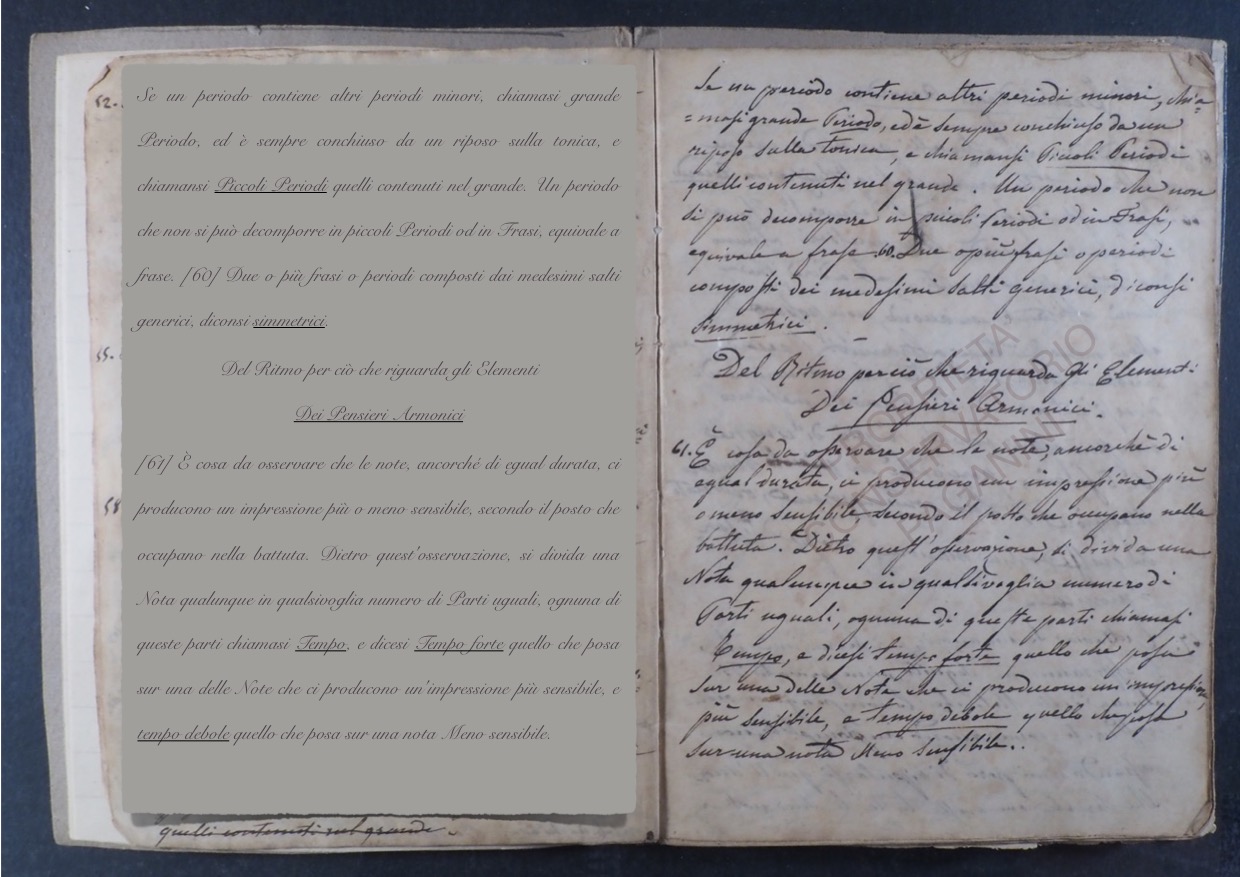 52.
55.
58
Se un periodo contiene altri periodi minori, chiamasi grande
Periodo, ed è sempre conchiuso da un riposo sulla tonica, e
chiamansi Piccoli Periodi quelli contenuti nel grande. Un periodo
che non si può decomporre in piccoli Periodi od in Frasi, equivale a
frase. [60] Due o più frasi o periodi composti dai medesimi salti
generici, diconsi simmetrici.
Del Ritmo per ciò che riguarda gli Elementi
Dei Pensieri Armonici
[61] È cosa da osservare che le note, ancorché di egual durata, ci
producono un impressione più o meno sensibile, secondo il posto che
occupano nella battuta. Dietro quest'osservazione, si divida una
Nota qualunque in qualsivoglia numero di Parti uguali, ognuna di
queste parti chiamasi Tempo, e dicesi Tempo forte quello che posa
sur una delle Note che ci producono un'impressione più sensibile, e
tempo debole quello che posa sur una nota Meno sensibile.
quelli contenuti nel grande.
Se un periodo contiene altri periodi minori, chia=
=masi grande Periodo, ed è sempre conchiuso da un
riposo sulla tonica, e chiamansi Piccoli Periodi
quelli contenuti nel grande. Un periodo che non
si può decomporre in piccoli Periodi od in Frasi,
equivale a frase. 60. Due o più frasi o periodi
composti dei medesimi salti generici, diconsi
simmetrici.
Del Ritmo per ciò che riguarda gli Elementi
Dei Pensieri Armonici.
61. È cosa da osservare che le note, ancorchè di
egual durata, ci producono un impressione più
o meno sensibile, secondo il posto che occupano nella
battuta. Dietro quest'osservazione, si divida una
Nota qualunque in qualsivoglia numero di
Parti uguali, ognuna di queste parti chiamasi
Tempo, e dicesi tempo forte quello che posa
sur una delle Note che ci producono un'impressione
più sensibile, e tempo debole quello che posa
sur una nota Meno sensibile.
PROPRIETÀ
CONSERVATORIO
PAGANINI